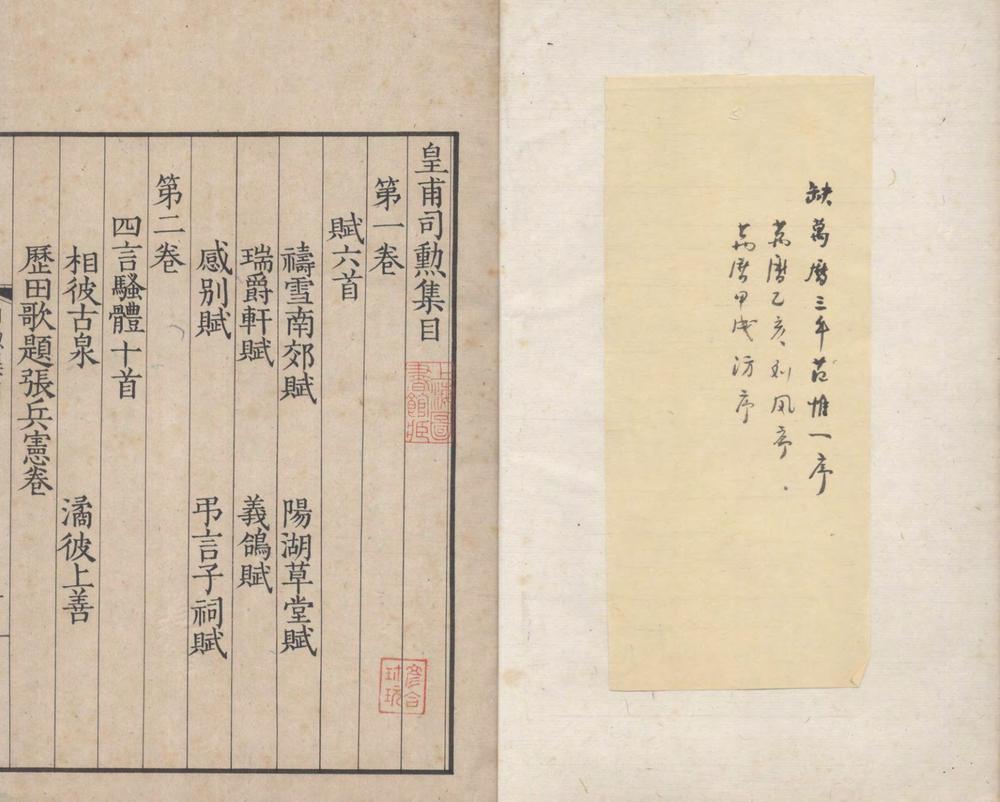 缺萬曆三年范惟一序
萬曆乙亥劉鳳序
萬曆甲戌汸序
皇甫司勲集目
第一卷
賦六首
禱雪南郊賦　陽湖草堂賦
瑞爵軒賦　義鴿賦
感別賦　弔言子祠賦
第二卷
四言騷體十首
相彼古泉　潏彼上善
歷田歌題張兵憲卷
上海圖書館臧